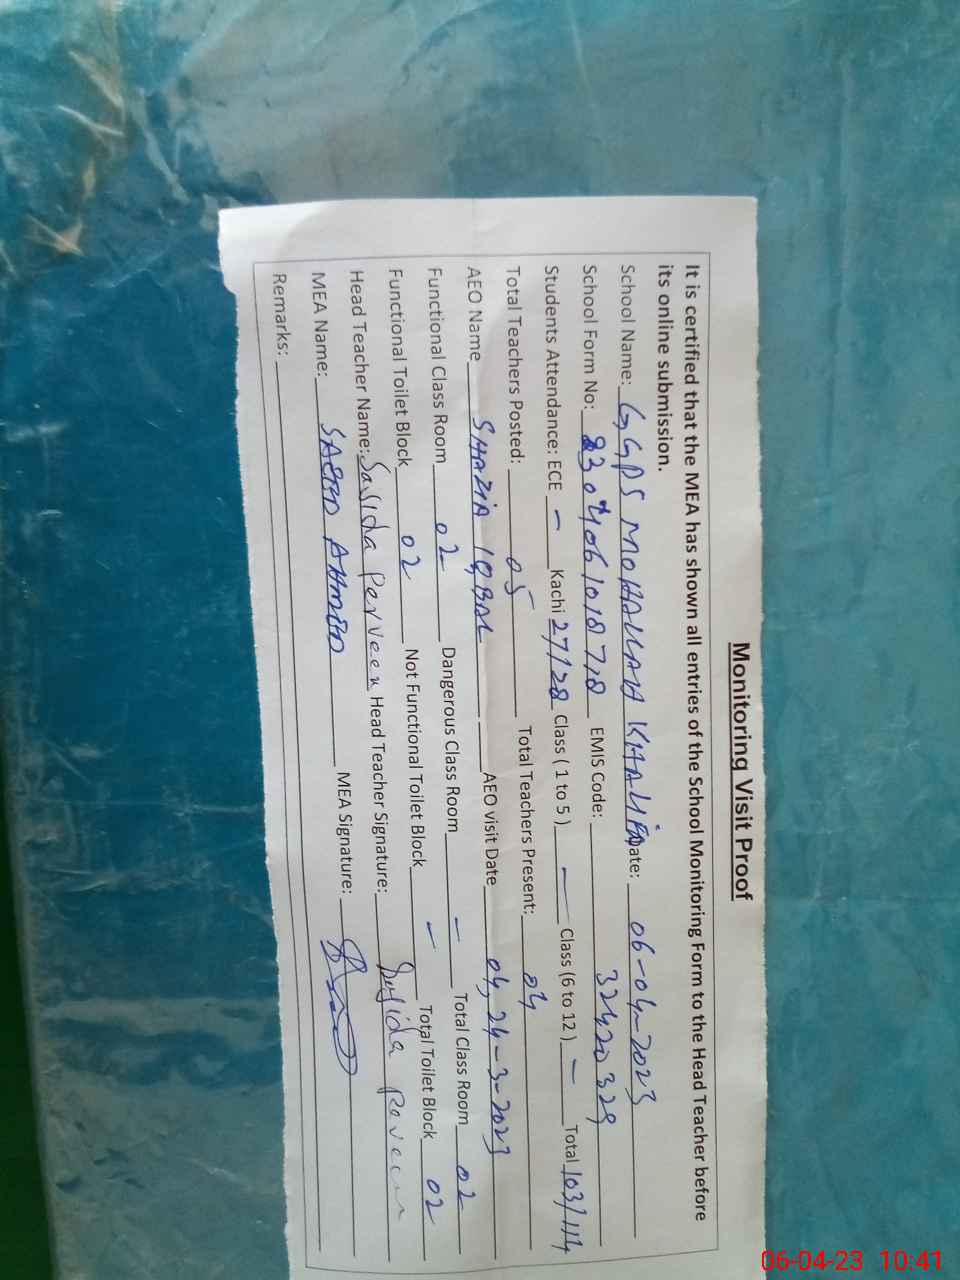 Monitoring Visit Proof
It is certified that the MEA has shown all entries of the School Monitoring Form to the Head Teacher before
its online submission.
School Name: GGPS MOHALLAH KHALIFA Date: 06-04-2023
School Form No: EMIS Code: 32420329
Students Attendance: ECE – Kachi 27/28 Class ( 1 to 5 ) – Class (6 to 12 ) – Total 103/114
Total Teachers Posted: 05 Total Teachers Present: 04
AEO Name SHAZIA IQBAL AEO visit Date 04, 24-3-2023
Functional Class Room 02 Dangerous Class Room – Total Class Room 02
Functional Toilet Block 02 Not Functional Toilet Block – Total Toilet Block 02
Head Teacher Name: Sajida Perveen Head Teacher Signature: Sajida Perveen
MEA Name: SAEED AHMED MEA Signature:
Remarks:
06-04-23 10:41